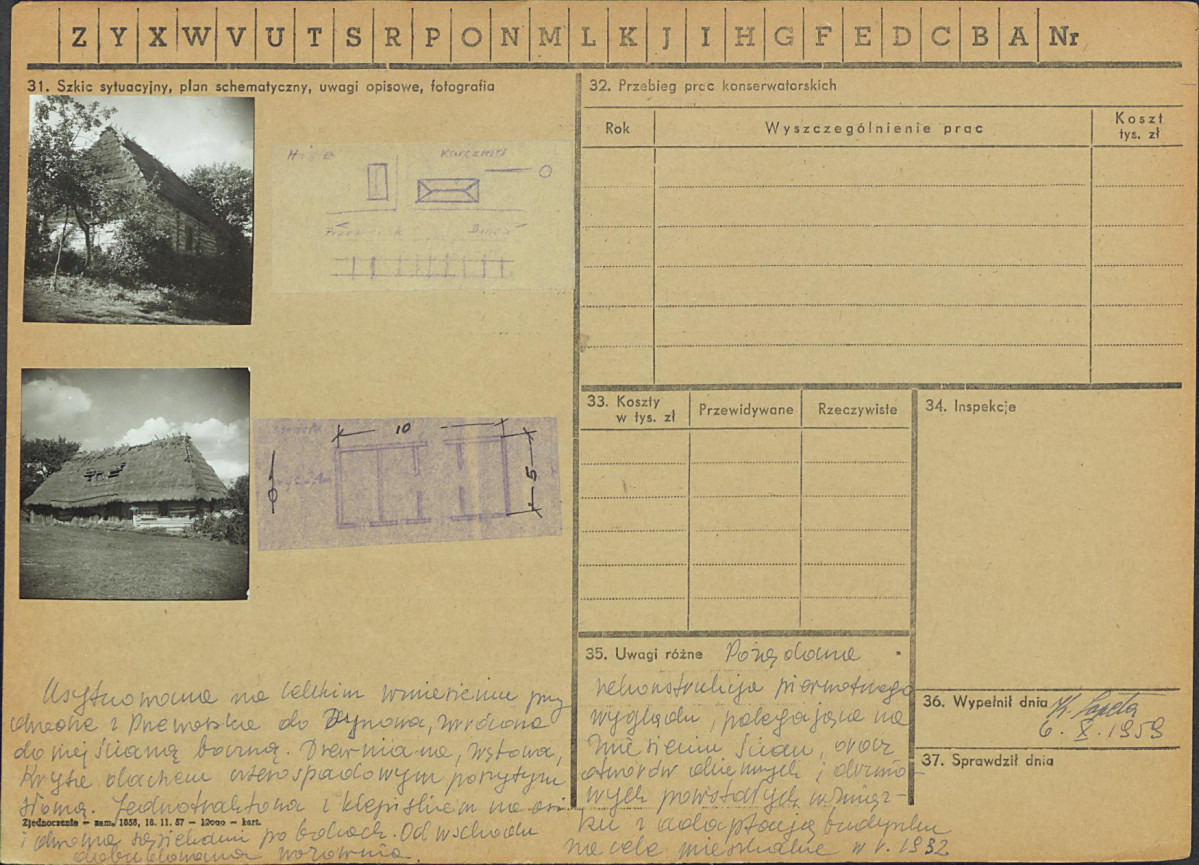 Z Y X W V U T S R P O N M L K J I H G F E D C B A Nr
31. Szkic sytuacyjny, plan schematyczny, uwagi opisowe, fotografia
Karczma
Przeworsk
10
5
Usytuowana na lekkim wzniesieniu przy
drodze z Przeworska do Dynowa, zwrócona
do niej ścianą boczną. Drewniana, zrębowa,
kryta dachem czterospadowym pokrytym
słomą. Jednotraktowa z klepiskiem na osi
i dwoma po bokach. Od wschodu
dobudowana wozownia.
Zjednoczenie – zam. 1858, 18. 11. 57 – 12000 – kart.
32. Przebieg prac konserwatorskich
Rok
Wyszczególnienie prac
Koszt
tys. zł
33. Koszty
w tys. zł
Przewidywane
Rzeczywiste
34. Inspekcje
35. Uwagi różne Pożądana
rekonstrukcja pierwotnego
wyglądu, polegająca na
zniesieniu ścian, oraz
otworów okiennych i drzwio-
wych powstałych w związ-
ku z adaptacją budynku
na cele mieszkalne w r. 1932
36. Wypełnił dnia
6. X. 1959
37. Sprawdził dnia